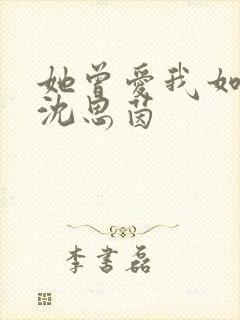 她曾愛我如
沈思茵
李書磊